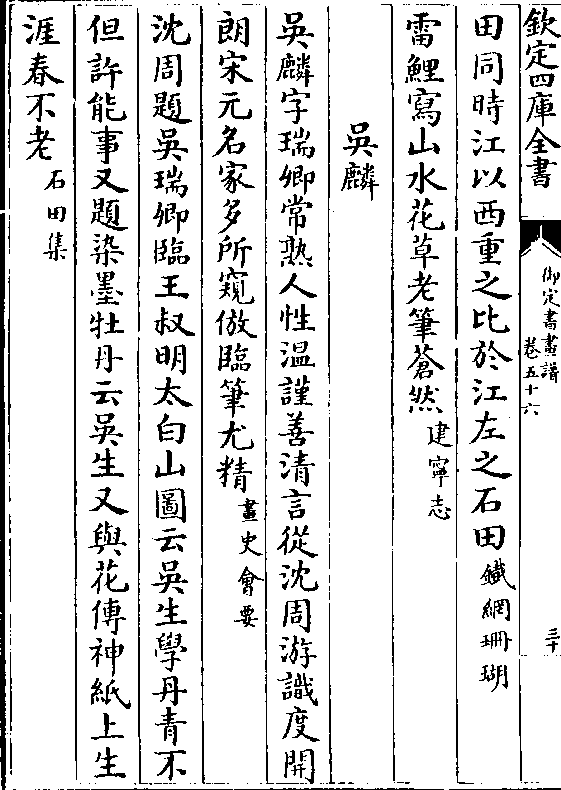 欽定四庫全書
御定書畫譜
卷五十六
三十
田同時江以西重之比於江左之石田鐵網珊瑚
雷鯉寫山水花草老筆蒼然建寧志
吳麟
吳麟字瑞卿常熟人性溫謹善清言從沈周游識度開
朗宋元名家多所窺倣臨筆尤精畫史會要
沈周題吳瑞卿臨王叔明太白山圖云吳生學丹青不
但許能事又題染墨牡丹云吳生又與花傳神紙上生
涯春不老石田集